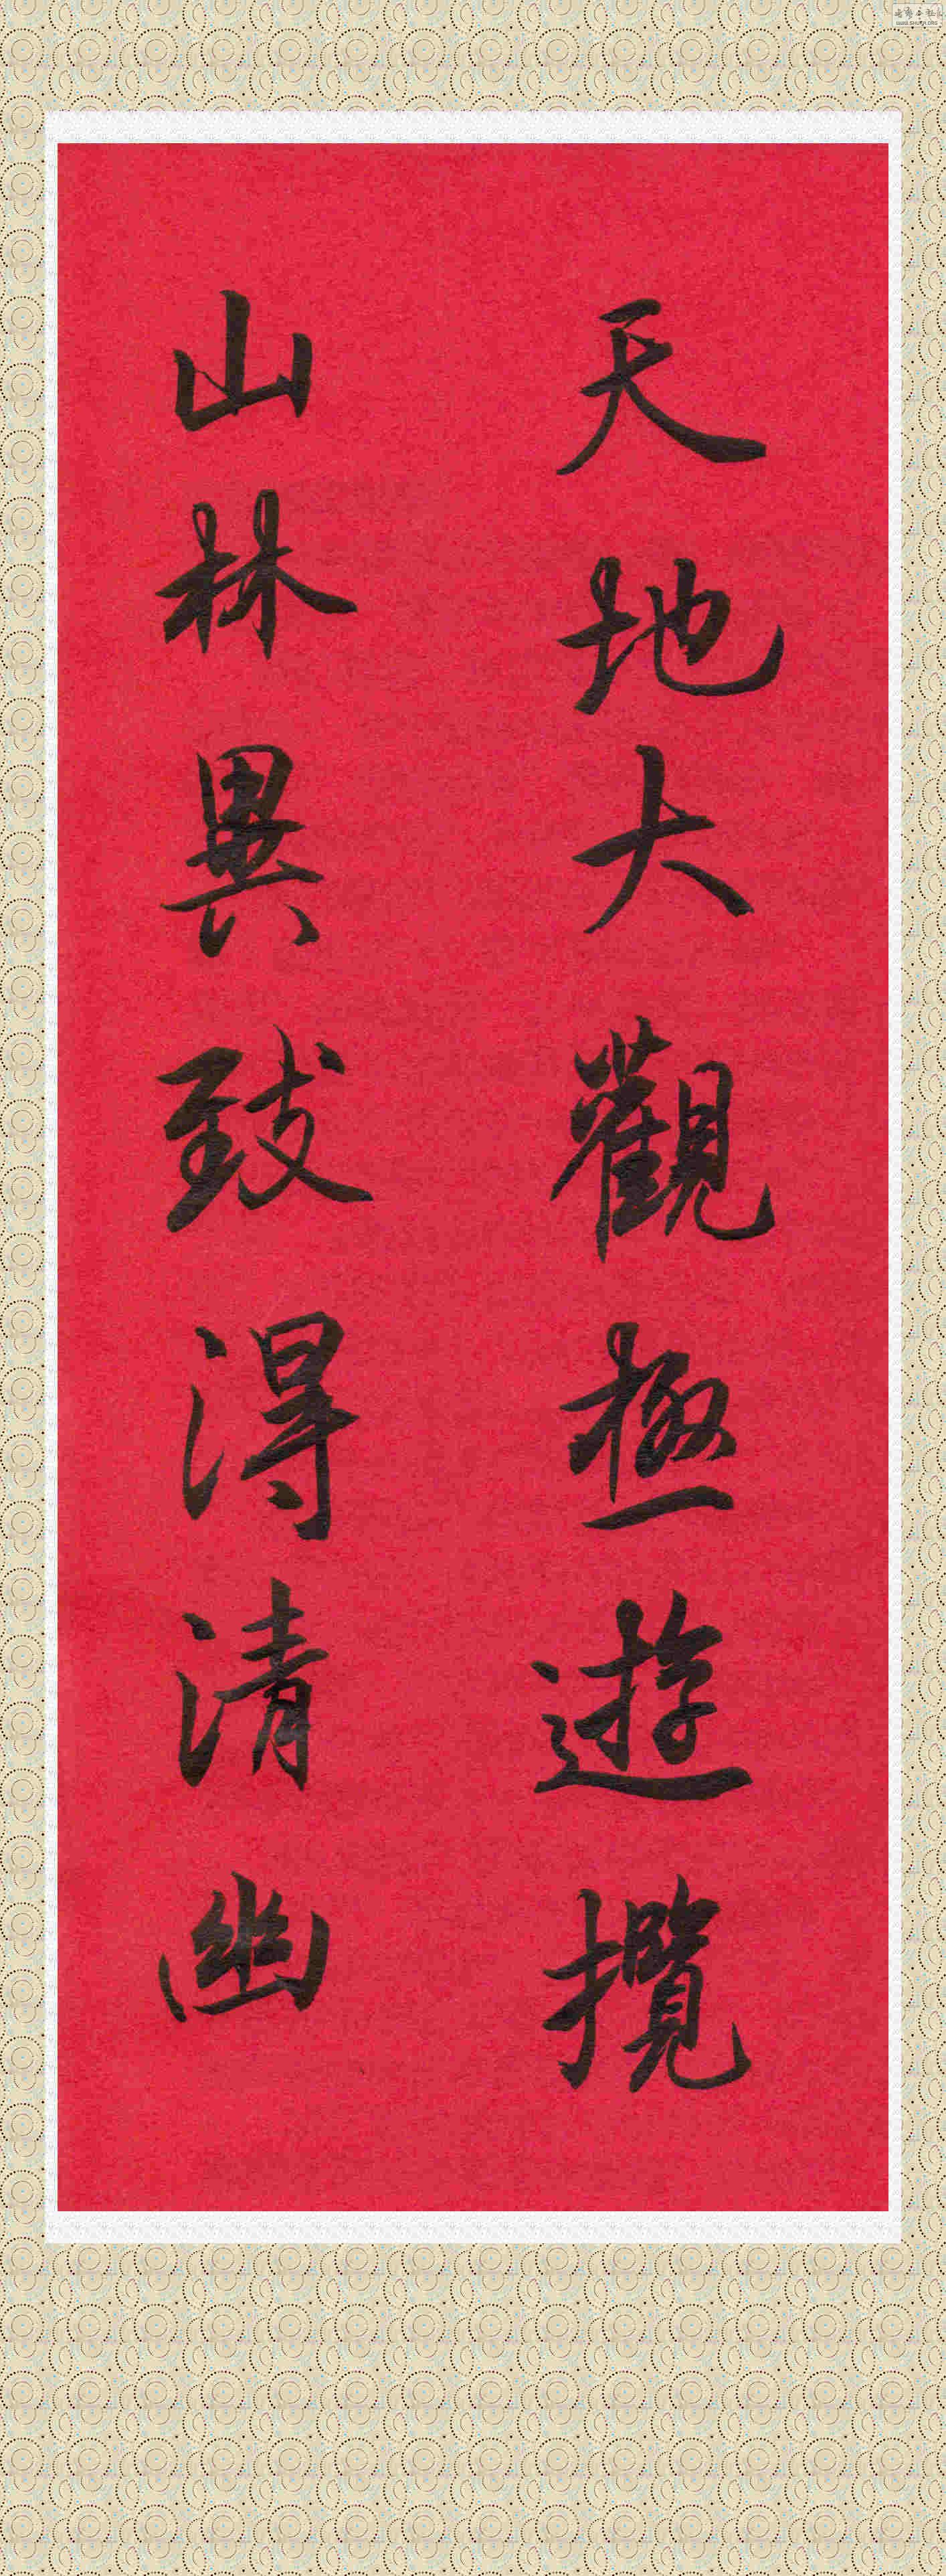 天地大觀極遊攬
山林異致得清幽